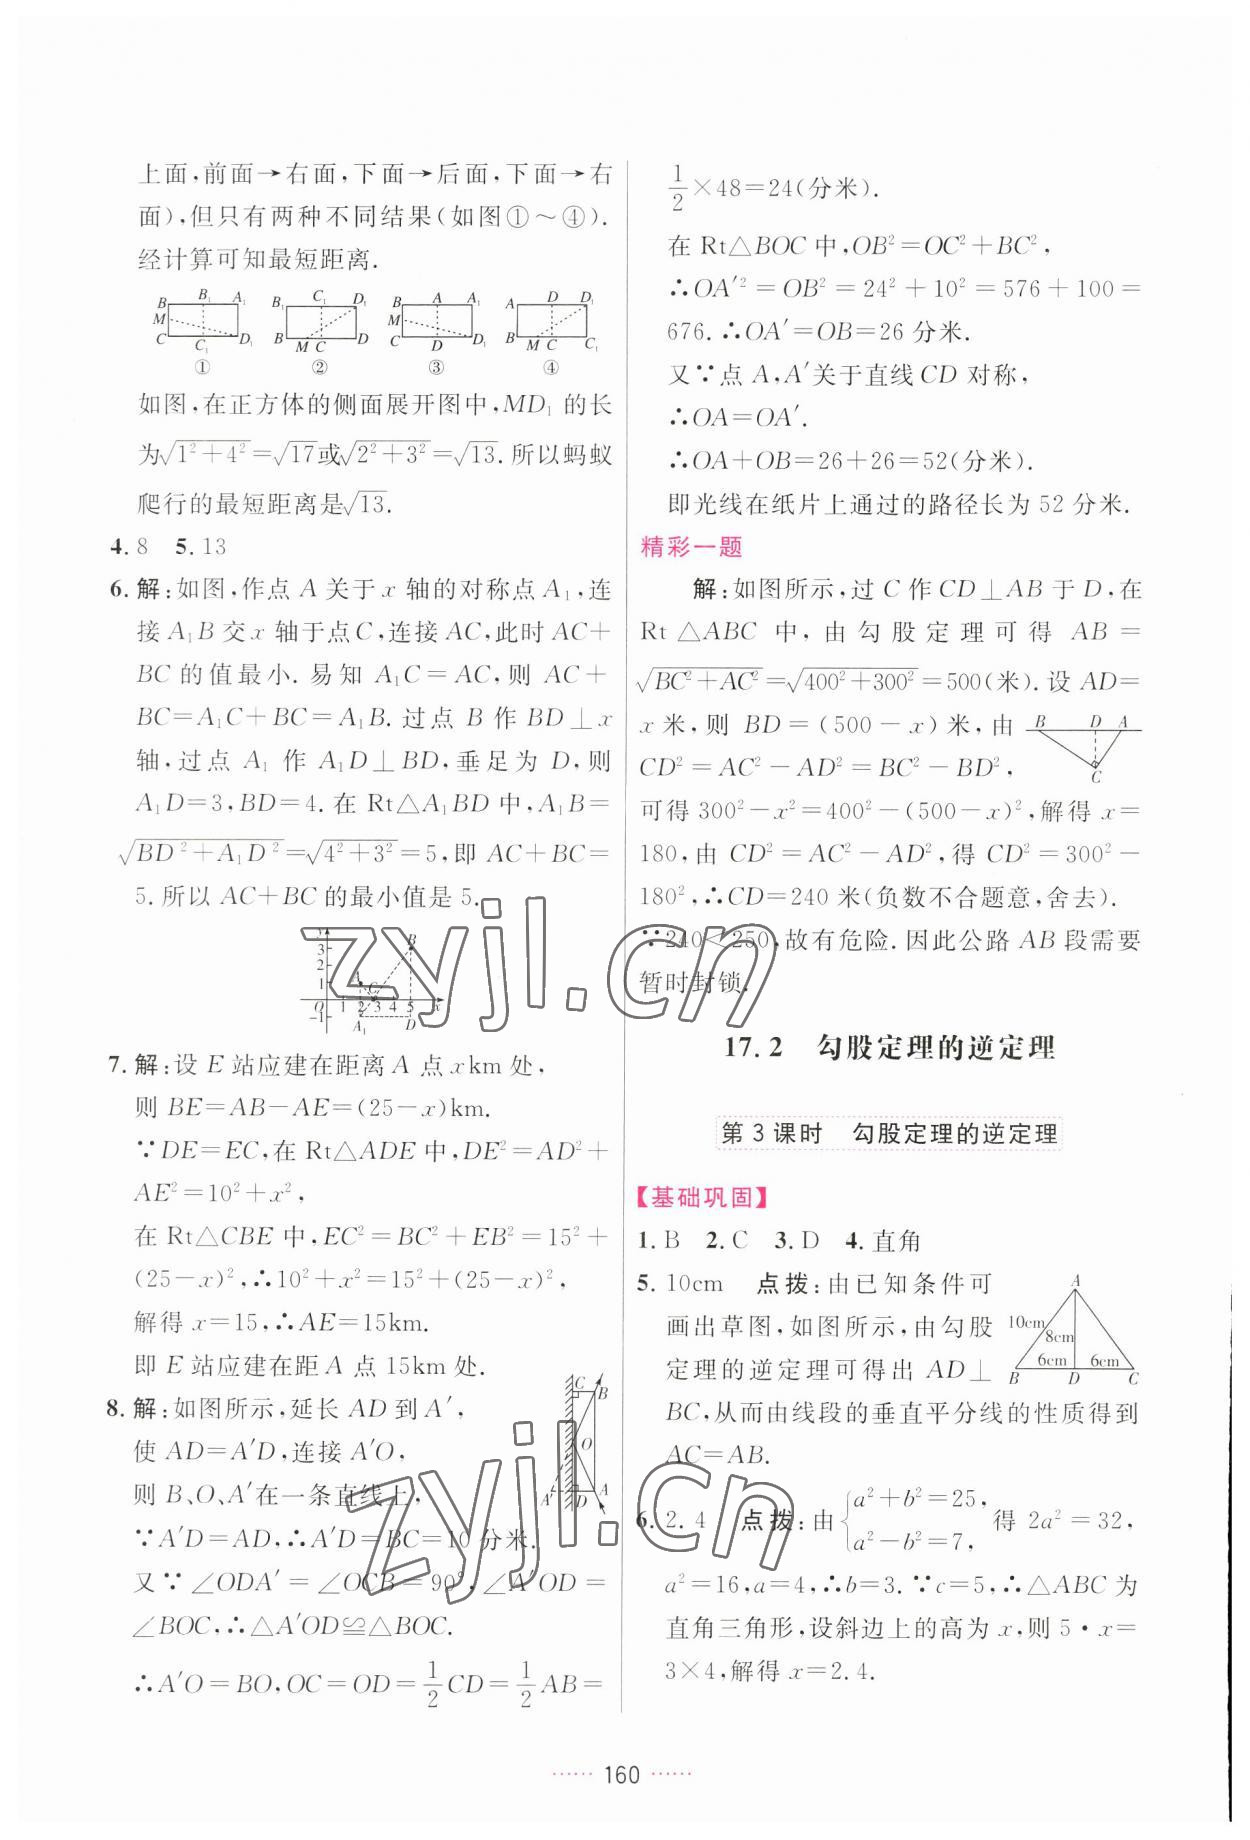 上面,前面→右面,下面→后面,下面→右
面),但只有两种不同结果(如图①～④).
经计算可知最短距离.
B B₁ A₁ M C C₁ D₁ ①
B₁ C₁ D₁ B M C D ②
B A A₁ M C D D₁ ③
A D D₁ B M C C₁ ④
如图,在正方体的侧面展开图中,MD₁ 的长
为√(1²+4²)=√17或√(2²+3²)=√13. 所以蚂蚁
爬行的最短距离是√13.
4. 8 5. 13
6. 解:如图,作点 A 关于 x 轴的对称点 A₁,连
接 A₁B 交 x 轴于点 C,连接 AC,此时 AC+
BC 的值最小. 易知 A₁C=AC,则 AC+
BC=A₁C+BC=A₁B. 过点 B 作 BD⊥x
轴,过点 A₁ 作 A₁D⊥BD,垂足为 D,则
A₁D=3,BD=4. 在 Rt△A₁BD 中,A₁B=
√(BD²+A₁D²)=√(4²+3²)=5,即 AC+BC=
5. 所以 AC+BC 的最小值是 5.
y 3 2 1 O −1 1 2 3 4 5 x A B C A₁ D
7. 解:设 E 站应建在距离 A 点 x km 处,
则 BE=AB−AE=(25−x)km.
∵DE=EC,在 Rt△ADE 中,DE²=AD²+
AE²=10²+x²,
在 Rt△CBE 中,EC²=BC²+EB²=15²+
(25−x)²,∴10²+x²=15²+(25−x)²,
解得 x=15,∴AE=15km.
即 E 站应建在距 A 点 15km 处.
8. 解:如图所示,延长 AD 到 A′,
使 AD=A′D,连接 A′O,
则 B、O、A′在一条直线上,
C B O A′ D A
∵A′D=AD,∴A′D=BC=10 分米.
又∵∠ODA′=∠OCB=90°,∠A′OD=
∠BOC,∴△A′OD≌△BOC.
∴A′O=BO,OC=OD=1/2CD=1/2AB=
1/2×48=24(分米).
在 Rt△BOC 中,OB²=OC²+BC²,
∴OA′²=OB²=24²+10²=576+100=
676. ∴OA′=OB=26 分米.
又∵点 A,A′关于直线 CD 对称,
∴OA=OA′.
∴OA+OB=26+26=52(分米).
即光线在纸片上通过的路径长为 52 分米.
精彩一题
解:如图所示,过 C 作 CD⊥AB 于 D,在
Rt△ABC 中,由勾股定理可得 AB=
√(BC²+AC²)=√(400²+300²)=500(米). 设 AD=
x 米,则 BD=(500−x)米,由
CD²=AC²−AD²=BC²−BD²,
B D A C
可得 300²−x²=400²−(500−x)²,解得 x=
180,由 CD²=AC²−AD²,得 CD²=300²−
180²,∴CD=240 米(负数不合题意,舍去).
∵240<250,故有危险. 因此公路 AB 段需要
暂时封锁.
17. 2 勾股定理的逆定理
第 3 课时 勾股定理的逆定理
【基础巩固】
1. B 2. C 3. D 4. 直角
5. 10cm 点拨:由已知条件可
画出草图,如图所示,由勾股
定理的逆定理可得出 AD⊥
A 10cm 8cm 6cm 6cm B D C
BC,从而由线段的垂直平分线的性质得到
AC=AB.
6. 2. 4 点拨:由{a²+b²=25, a²−b²=7, 得 2a²=32,
a²=16,a=4,∴b=3. ∵c=5,∴△ABC 为
直角三角形,设斜边上的高为 x,则 5·x=
3×4,解得 x=2. 4.
zyjl.cn
zyjl.cn
······ 160 ······